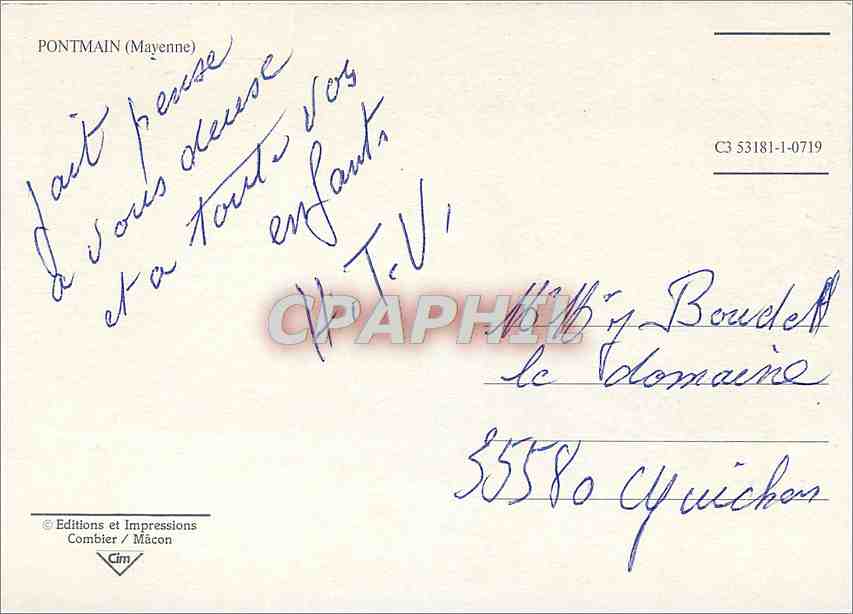 PONTMAIN (Mayenne)
fait pense
à vous deuse
et a toute vos
enfants
H.T.V.
C3 53181-1-0719
CPAPHIL
Boudet
le domaine
35580 Guichen
© Editions et Impressions
Combier / Mâcon
Cim